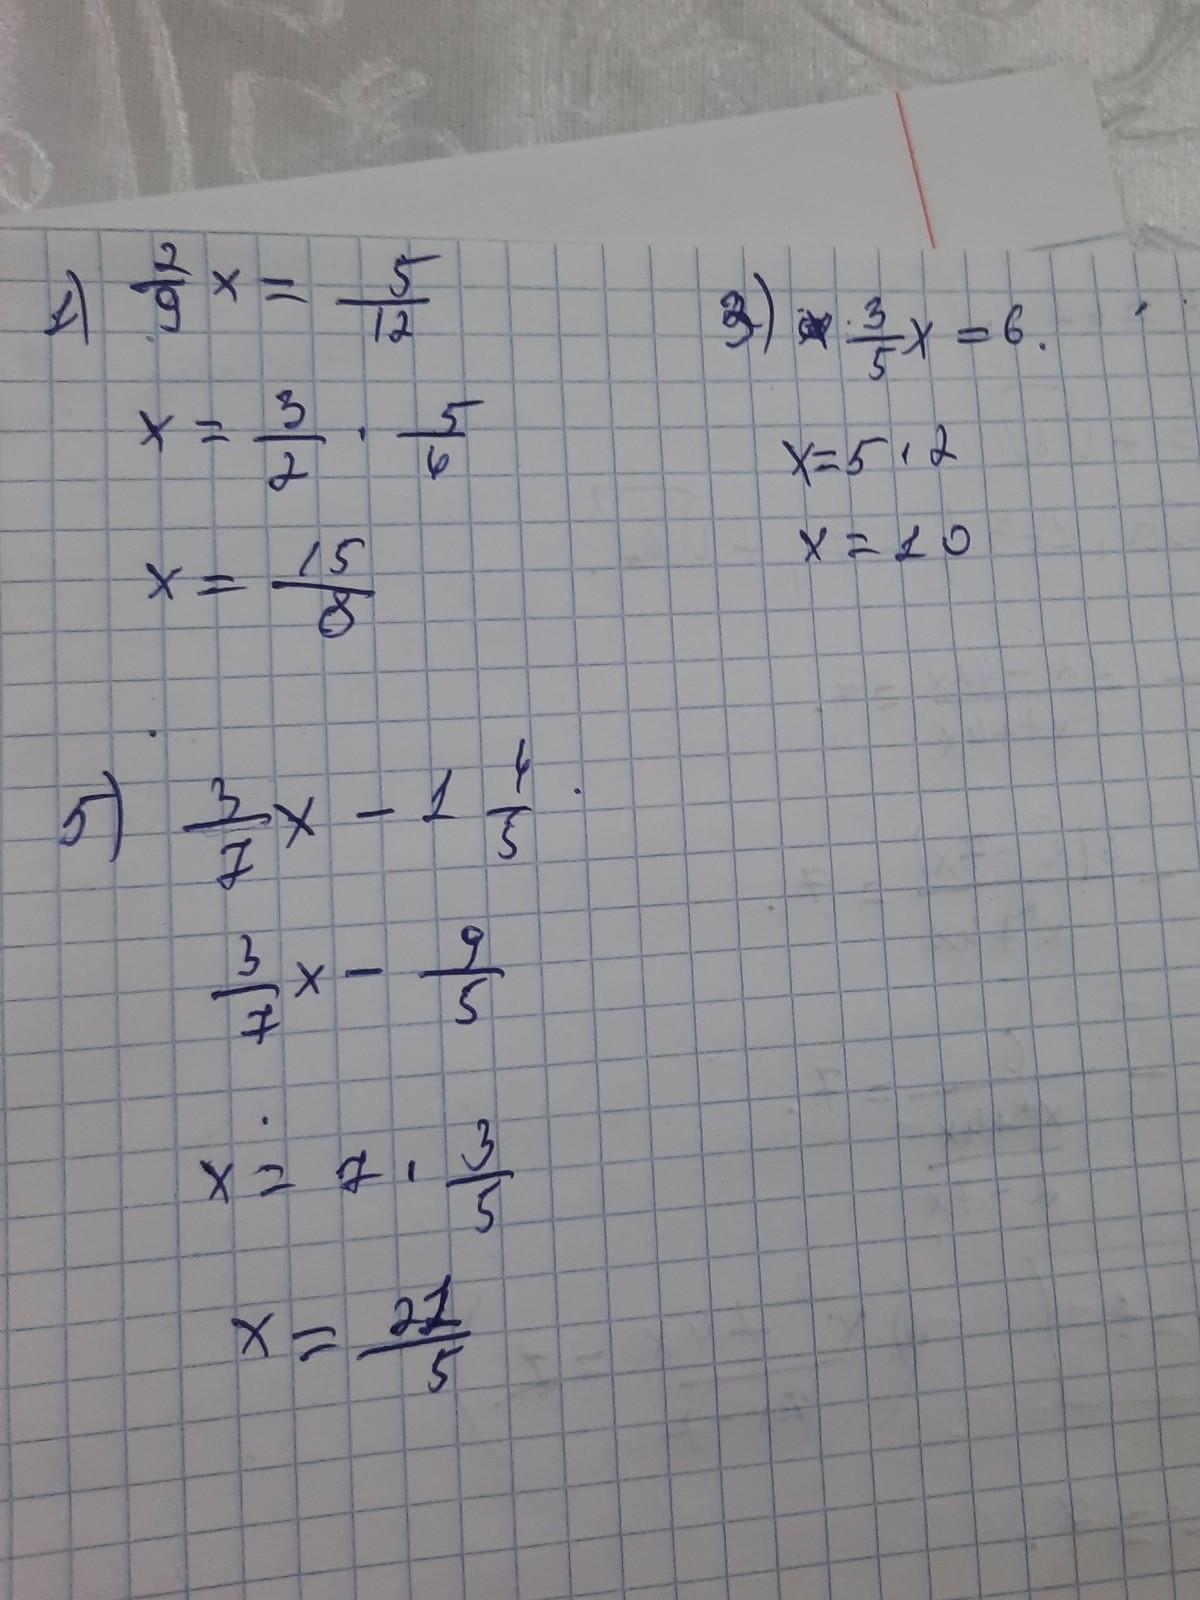 1) 2/9 x = 5/12
x = 3/2 · 5/4
x = 15/8
3) 3/5 x = 6.
x = 5 · 2
x = 10
5) 3/7 x - 1 4/5
3/7 x - 9/5
x = 7 · 3/5
x = 21/5